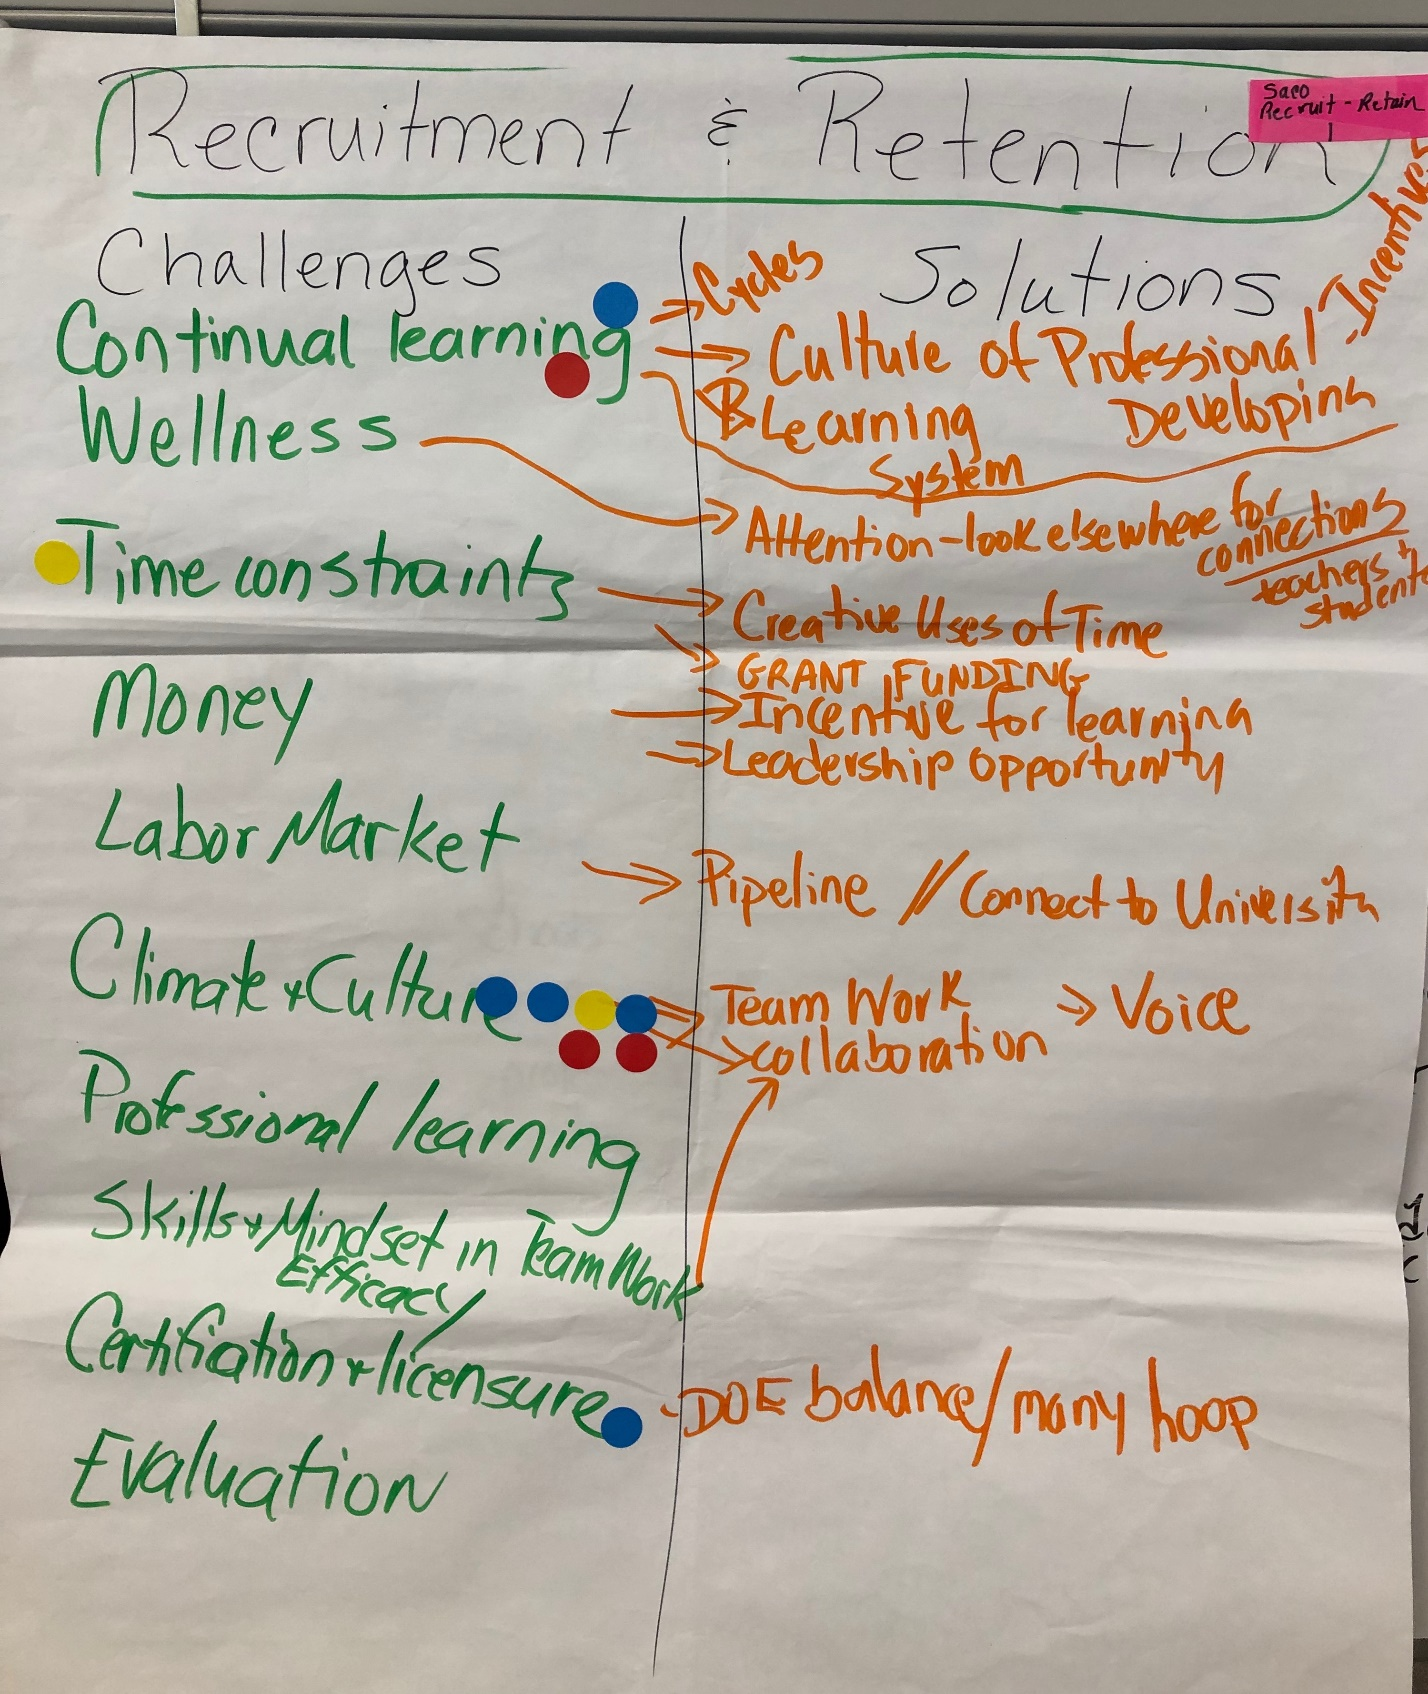 Recruitment & Retention
Saco
Recruit - Retain
1
Challenges
Continual learning
Wellness
Time constraints
Money
Labor Market
Climate + Culture
Professional learning
Skills + Mindset in Team Work
Efficacy
Certification + licensure
Evaluation
Solutions
Cycles
Culture of Professional
Developing
- Incentives
Learning
System
Attention - look elsewhere for
connections
teachers +
students
Creative Uses of Time
GRANT FUNDING
Incentive for learning
Leadership opportunity
Pipeline // Connect to University
Team Work → Voice
collaboration
- DOE balance / many hoop